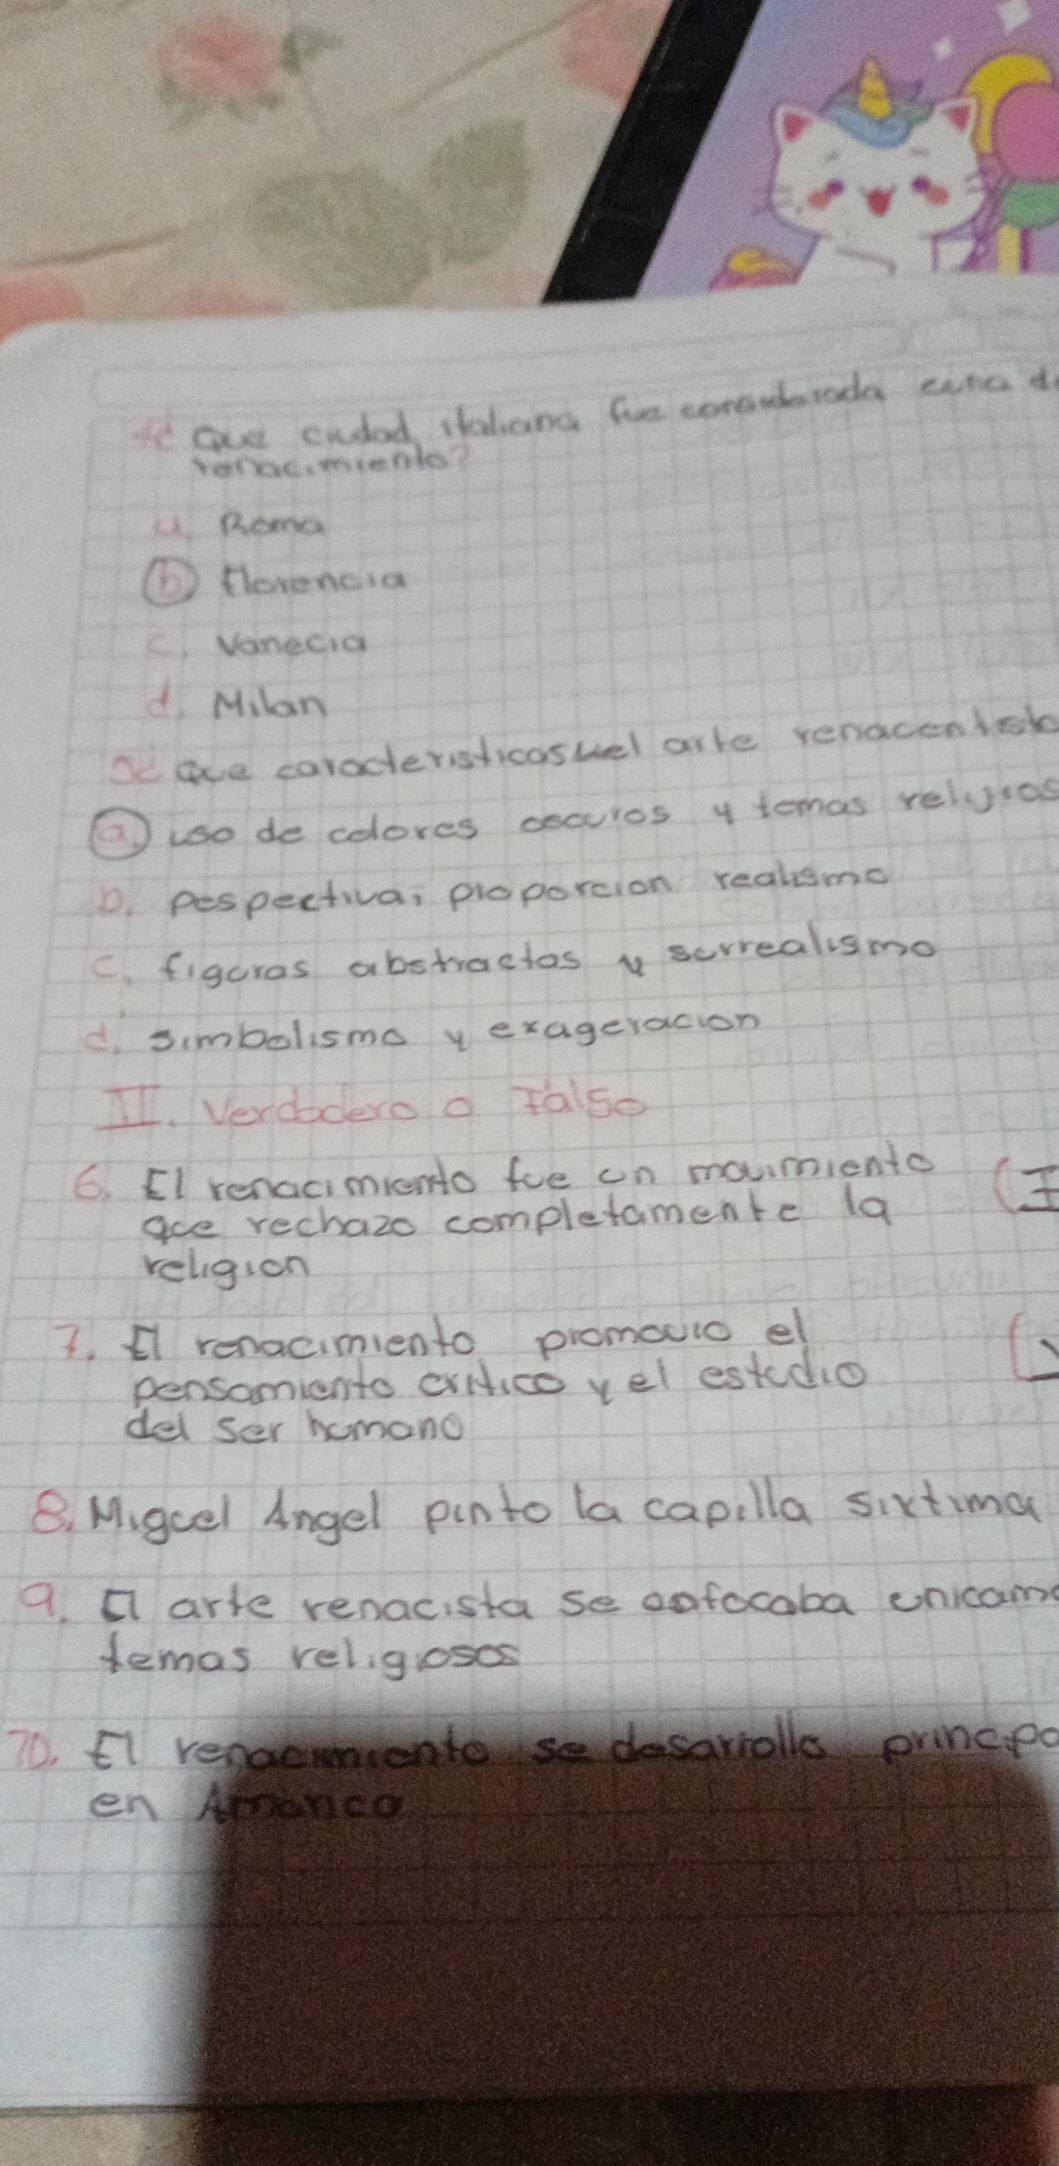 Que ciudad italiana fue considerada cuna d
renacimiento?
a. Roma
b) florencia
c. Vanecia
d. Milan
5¿ Que caracteristicas del arte renacentist
a) uso de colores oscuros y temas religios
b. pespectiva, proporcion realismo
c. figuras abstractas y surrealismo
d. simbolismo y exageracion
II. Verdadero o Falso
6. El renacimiento fue un movimiento (F
que rechazo completamente la
religion
7. El renacimiento promovio el (V
pensamiento critico y el estudio
del ser humano
8. Miguel Angel pinto la capilla sixtima
9. El arte renacista se enfocaba unicame
temas religosos
10. El renacimiento se desarrollo princpa
en